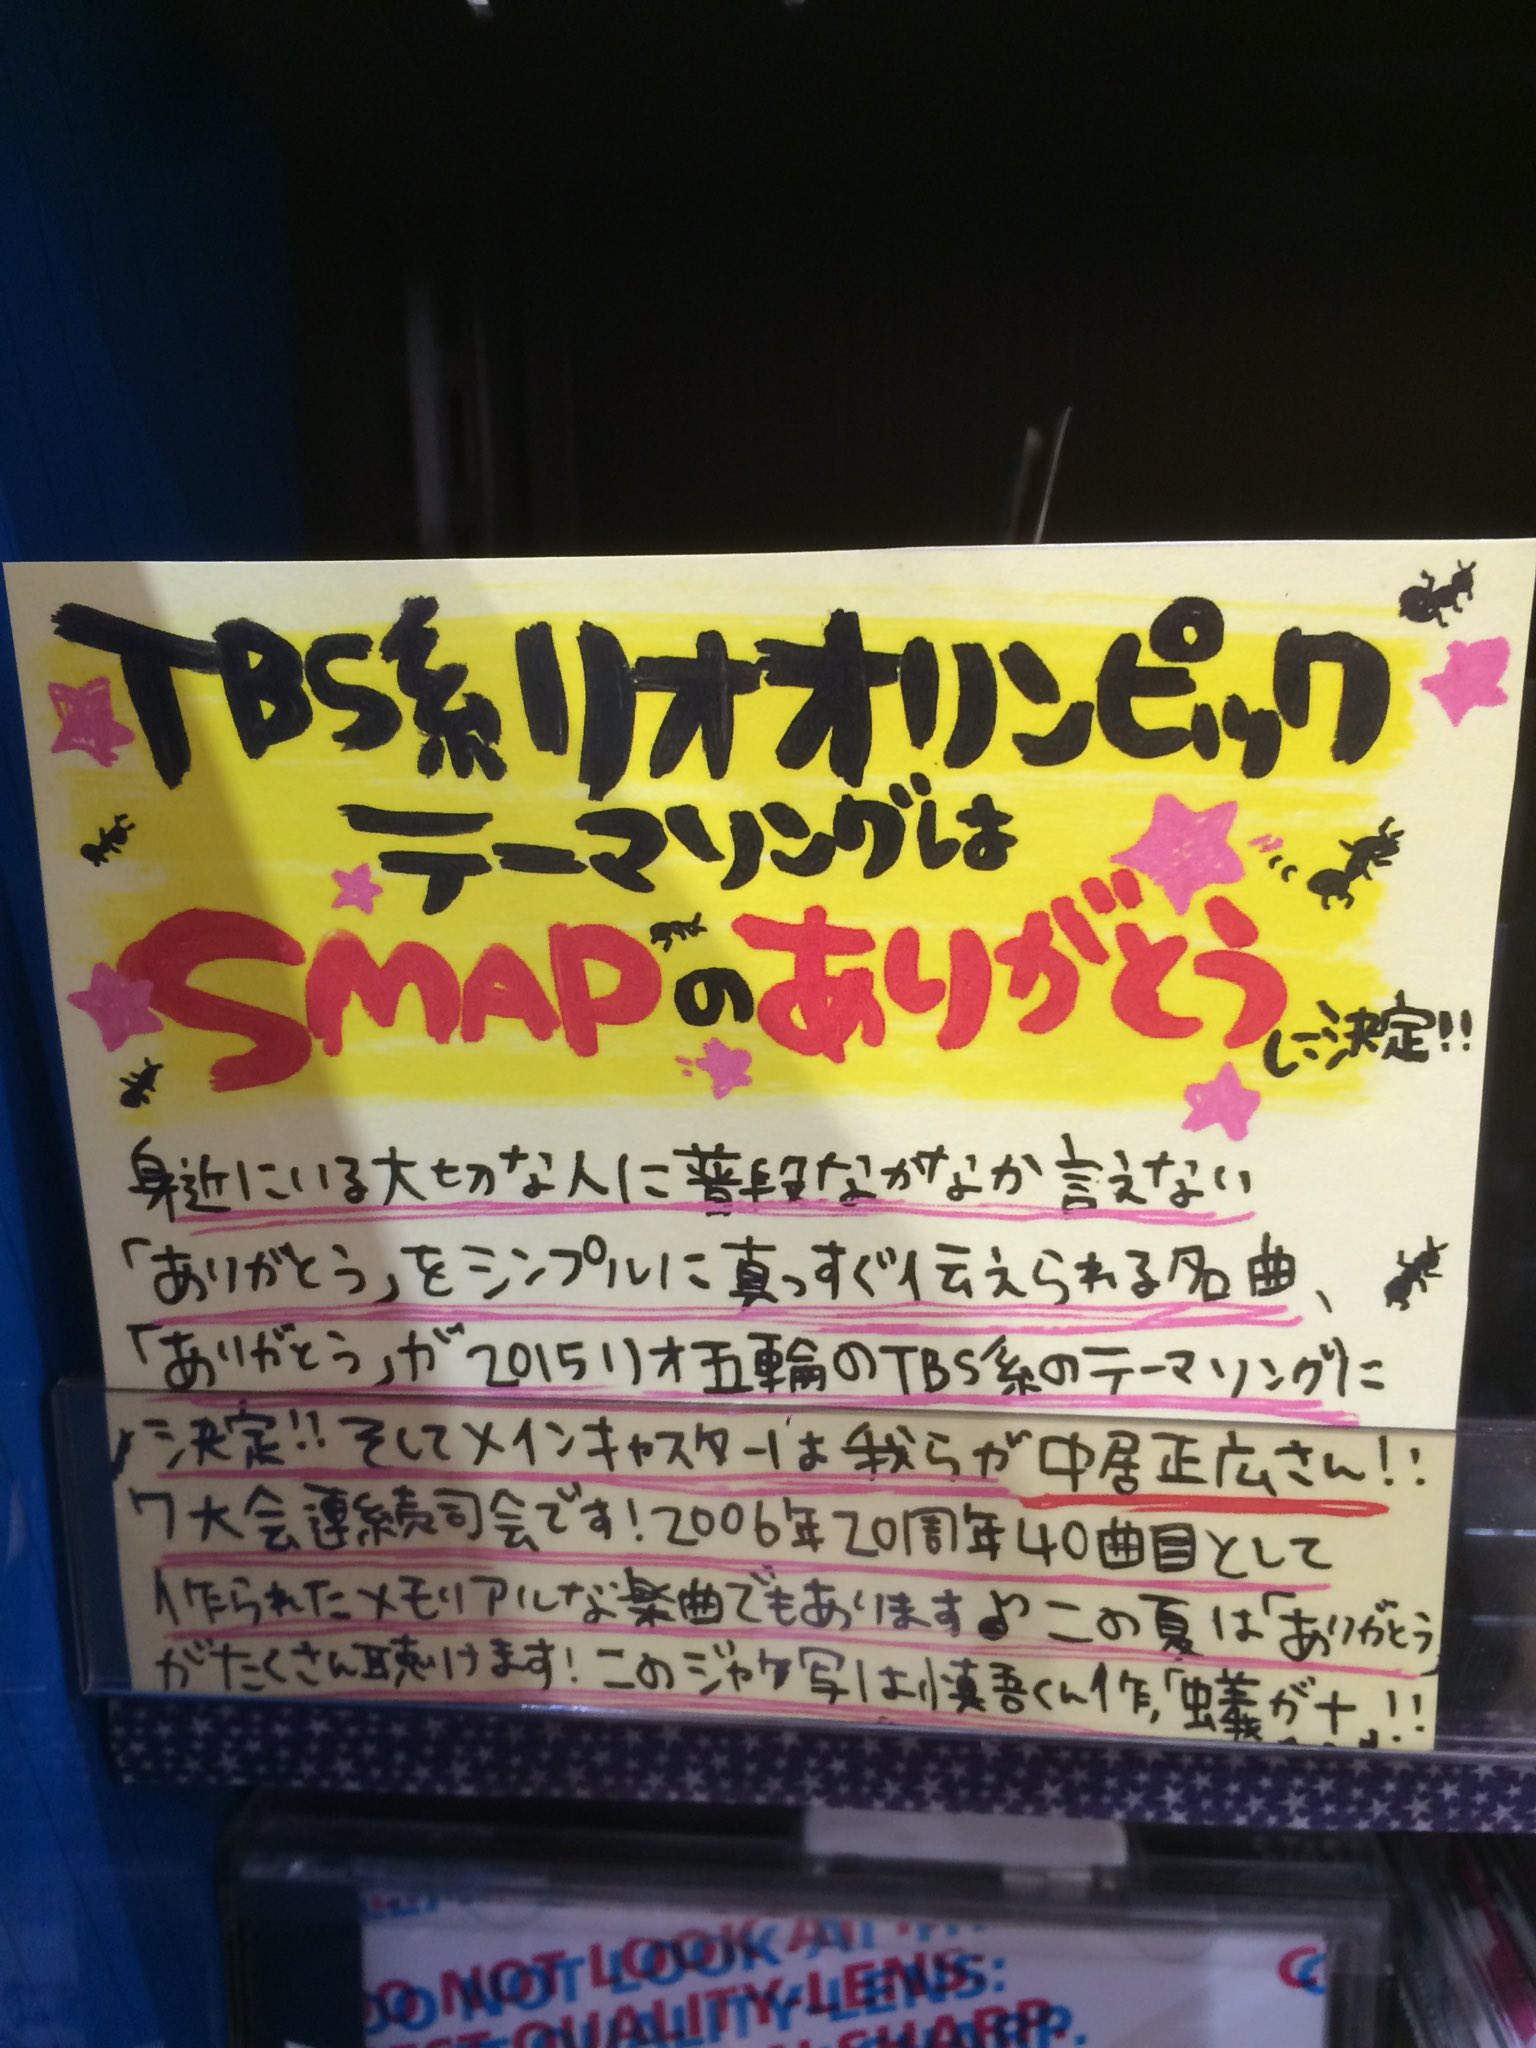 TBS系リオオリンピック
テーマソングは
SMAPのありがとう
に決定!!
身近にいる大切な人に普段なかなか言えない
「ありがとう」をシンプルに真っすぐ伝えられる名曲、
「ありがとう」が2015リオ五輪のTBS系のテーマソングに
決定!!そしてメインキャスターは我らが中居正広さん!!
7大会連続司会です!2006年20周年40曲目として
作られたメモリアルな楽曲でもあります♪この夏は「ありがとう」
がたくさん聴けます!このジャケ写は慎吾くん作,「蟻が十」!!
DO NOT LOOK AT
QUALITY-LENS:
SHARP.